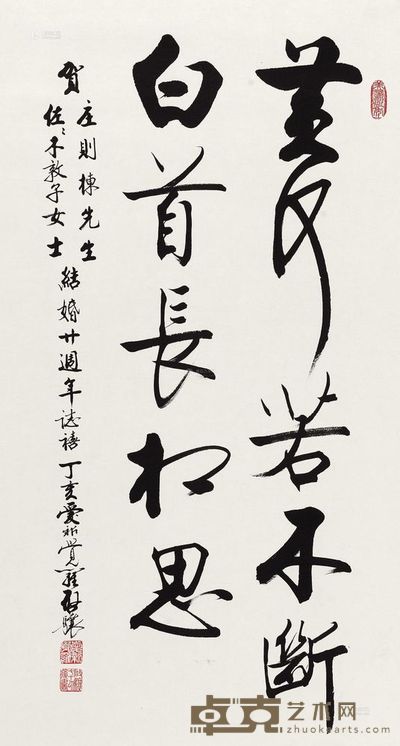 黄河若不斷
白首長相思
賀
庄則棟先生
佐〻木敦子女士
結婚廿週年誌禧 丁亥愛新覺羅啟驤
卓克艺术网
zhuokearts.com